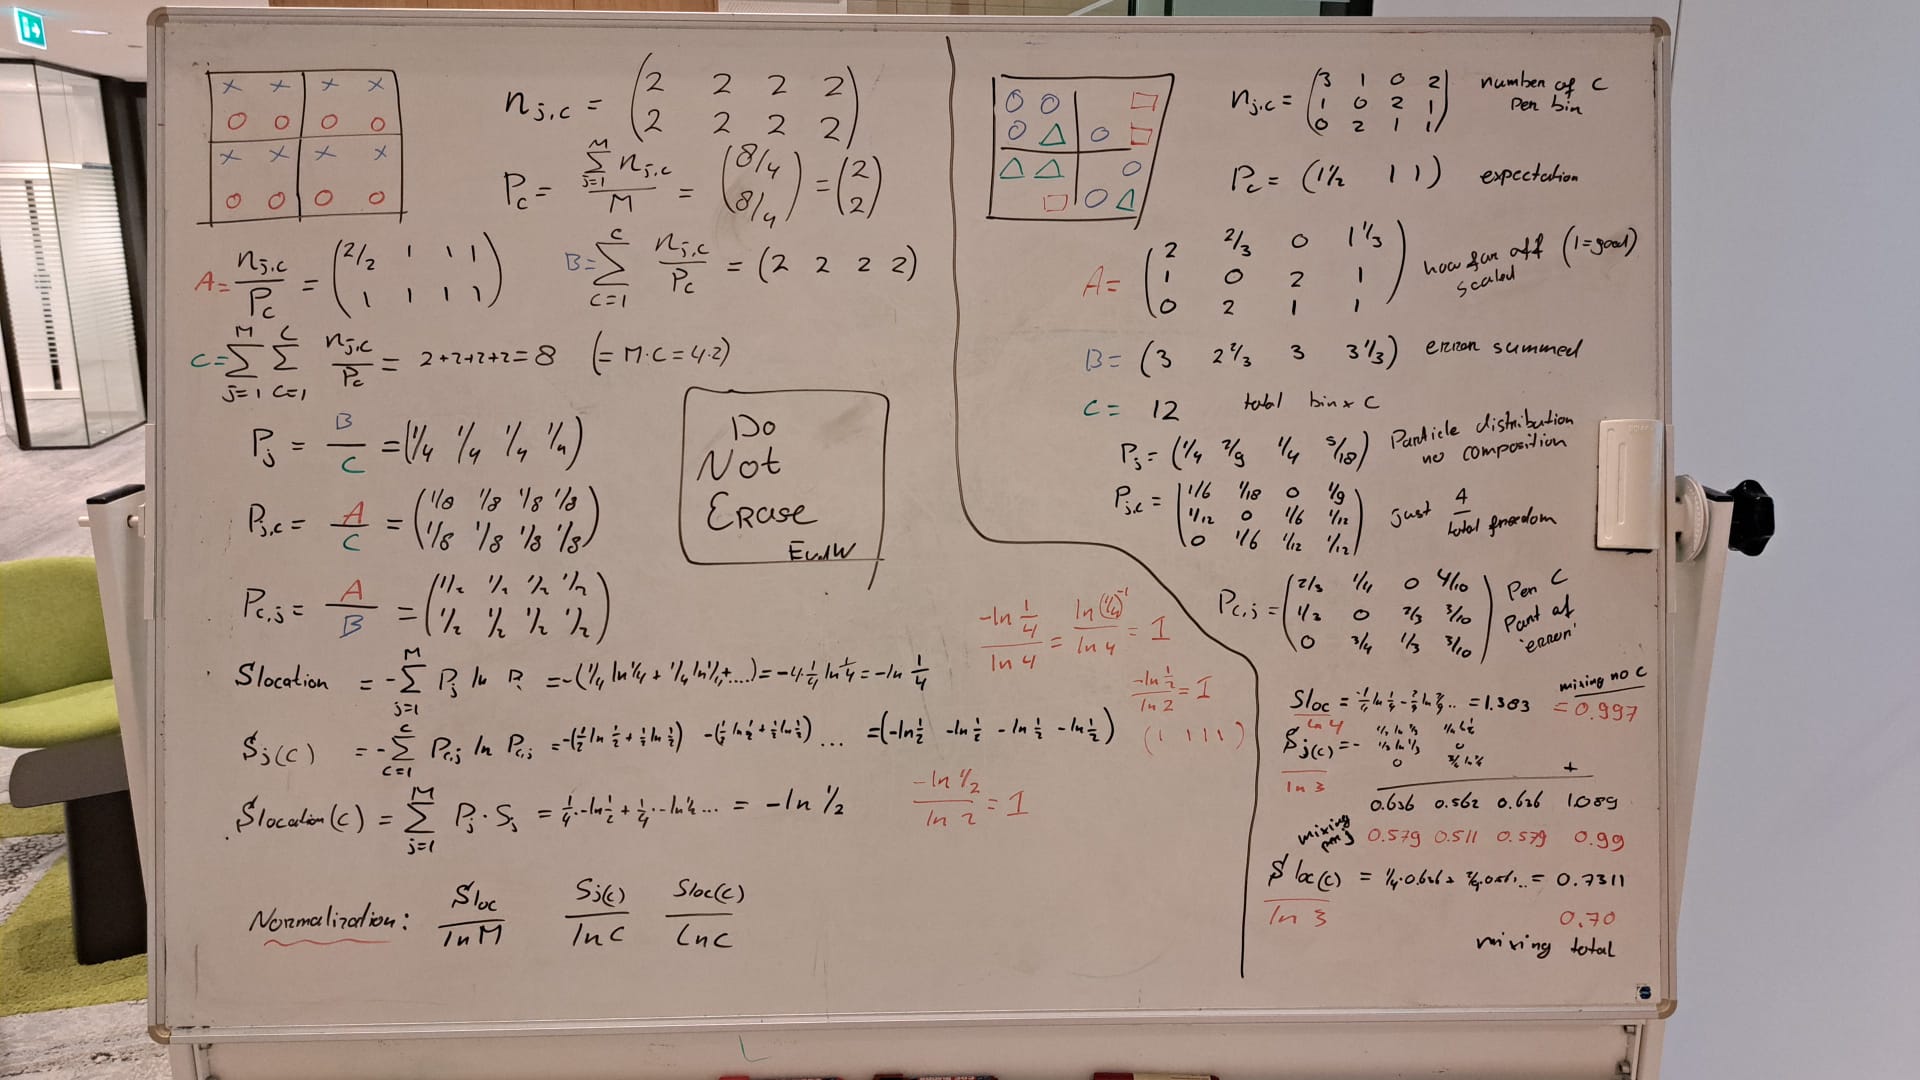 n_{j,c} = (2 2 2 2
2 2 2 2)
P_c = \sum_{j=1}^{M} n_{j,c} / M = (8/4
8/4) = (2
2)
A = n_{j,c} / P_c = (2/2 1 1 1
1 1 1 1)
B = \sum_{c=1}^{C} n_{j,c} / P_c = (2 2 2 2)
C = \sum_{j=1}^{M} \sum_{c=1}^{C} n_{j,c} / P_c = 2+2+2+2=8 (= M·C = 4·2)
P_j = B / C = (1/4 1/4 1/4 1/4)
P_{j,c} = A / C = (1/8 1/8 1/8 1/8
1/8 1/8 1/8 1/8)
P_{c,j} = A / B = (1/2 1/2 1/2 1/2
1/2 1/2 1/2 1/2)
Do
Not
Erase
EvdW
Slocation = -\sum_{j=1}^{M} P_j ln P_j = -(1/4 ln 1/4 + 1/4 ln 1/4 + ....) = -4·1/4 ln 1/4 = -ln 1/4
S_{j(c)} = -\sum_{c=1}^{C} P_{c,j} ln P_{c,j} = -(1/2 ln 1/2 + 1/2 ln 1/2) -(1/2 ln 1/2 + 1/2 ln 1/2) ... = (-ln 1/2 -ln 1/2 -ln 1/2 -ln 1/2)
Slocation(c) = \sum_{j=1}^{M} P_j · S_j = 1/4 · -ln 1/2 + 1/4 · -ln 1/2 ... = -ln 1/2
Normalization: Sloc / ln M S_{j(c)} / ln C Sloc(c) / ln C
-ln 1/4 / ln 4 = ln (1/4)^{-1} / ln 4 = 1
-ln 1/2 / ln 2 = 1
(1 1 1 1)
-ln 1/2 / ln 2 = 1
n_{j,c} = (3 1 0 2
1 0 2 1
0 2 1 1) number of C
per bin
P_c = (1 1/2 1 1) expectation
A = (2 2/3 0 1 1/3
1 0 2 1
0 2 1 1) how far off (1=good)
scaled
B = (3 2 2/3 3 3 1/3) error summed
C = 12 total bin x C
P_j = (1/4 2/9 1/4 5/18) Particle distribution
no composition
P_{j,c} = (1/6 1/18 0 1/9
1/12 0 1/6 1/12
0 1/6 1/12 1/12) just A / total freedom
P_{c,j} = (2/3 1/4 0 4/10
1/3 0 2/3 3/10
0 3/4 1/3 3/10) Per C
Part of
'error'
Sloc = -1/4 ln 1/4 - 2/9 ln 2/9 .. = 1.383 mixing no C
ln 4 = 0.997
S_{j(c)} = - 2/3 ln 2/3 1/4 ln 1/4
1/3 ln 1/3 0
0 3/4 ln 3/4
ln 3 +
0.636 0.562 0.636 1.089
mixing
per j 0.579 0.511 0.579 0.99
Sloc(c) = 1/4·0.636 + 2/9·0.561.. = 0.7311
ln 3 0.70
mixing total